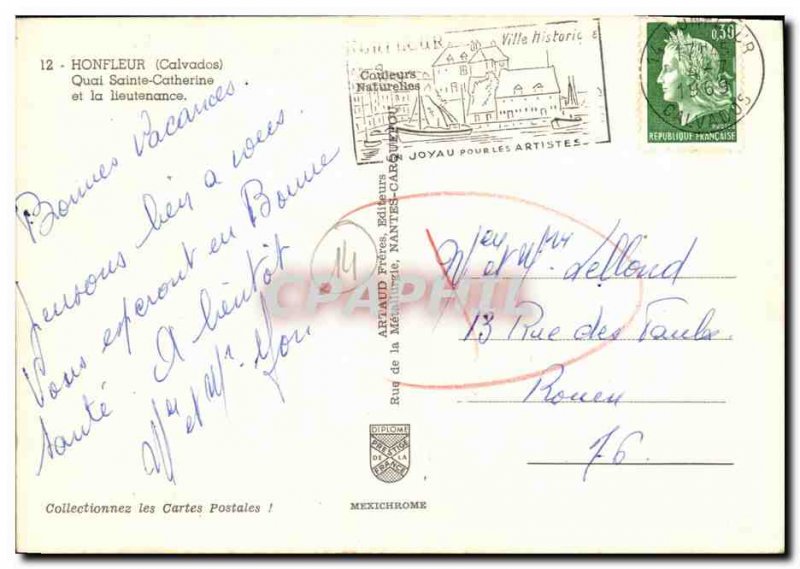 12 - HONFLEUR (Calvados)
Quai Sainte-Catherine
et la lieutenance.
Bonnes Vacances.
pensons bien a vous.
Vous esperont en Bonne
santé. A bientôt
et Mr
HONFLEUR Ville Historique
Couleurs
Naturelles
JOYAU POUR LES ARTISTES
0,30
REPUBLIQUE FRANÇAISE
14 HONFLEUR
1969
CALVADOS
ARTAUD Frères, Editeurs
Rue de la Métallurgie, NANTES-CARQUEFOU
14
CPAPHIL
et Mme Lellond
13 Rue des
Rouen
76.
DIPLOME
PRESTIGE
DE LA
FRANCE
Collectionnez les Cartes Postales !
MEXICHROME